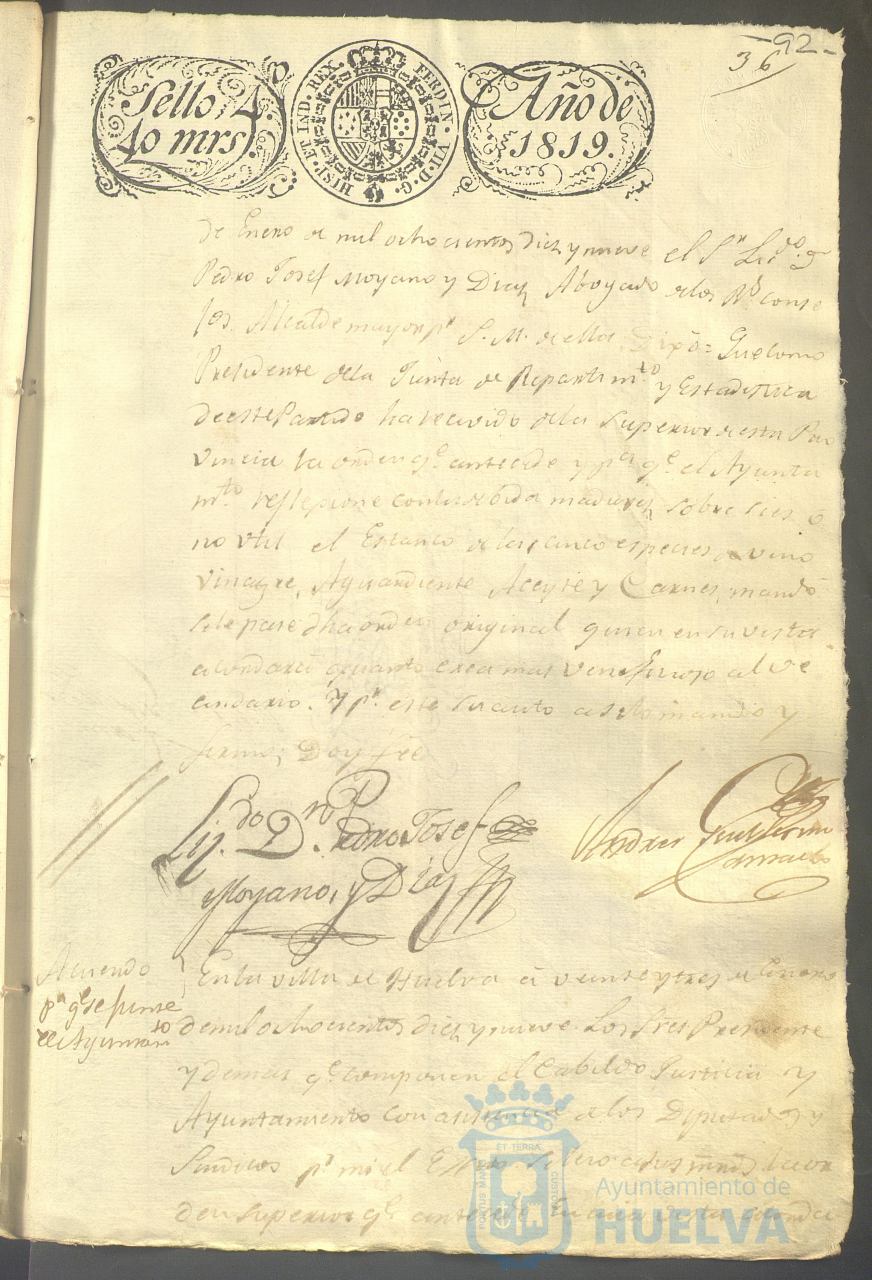 -92-
36
Sello 4.
40 mrs.
HISP. ET IND. REX. FERDIN. VII. D. G.
Año de
1819.
de Enero de mil ocho cientos diez y nueve el Sr. Licdo. Dn
Pedro Josef Moyano y Diaz Abogado de los Rs. conse
jos. Alcalde mayor pr. S. M. de ella. Dixo: Que como
Presidente de la Junta de Repartimto. y Estadistica
de este Partido ha recivido de la Superior de esta Pro
vincia la orden qe. antecede y pa. qe. el Ayunta
mto. reflexione con la debida madurez sobre si es o
no util el Estanco de las cinco especies de vino
vinagre, Aguardiente Aceyte y Carnes, mandó
se le pase dha orden original quien en su vista
acordará quanto crea mas veneficioso al ve
cindario. Y pr. este su auto asi lo mando y
firma, Doy fee
Lizdo. Dn. Pedro Josef
Moyano, y Diaz
Andres
Acuerdo
pa. qe. se junte
el Ayuntamto
En la villa de Huelva á veinte y tres de Enero
de mil ocho cientos diez y nueve. Los Sres Presidente
y demas qe. componen el Cabildo Justicia y
Ayuntamiento con asistencia de los Diputados y
Sindicos pr. mi el Essno. a sus mrds. la or
den superior qe. antecede
PORTUS MARIS ET TERRAE CUSTODIA
Ayuntamiento de
HUELVA